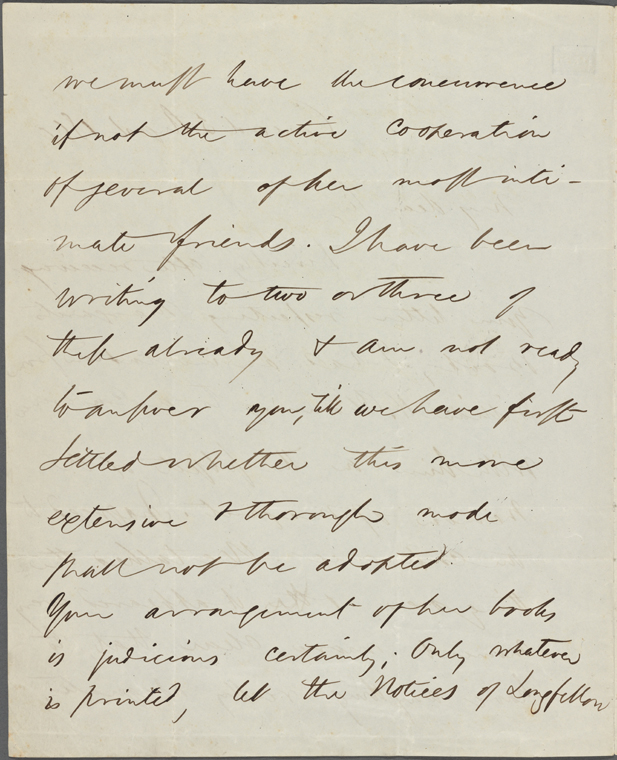 we must have the concurrence
if not the active cooperation
of several of her most inti-
mate friends. I have been
writing to two or three of
these already & am not ready
to answer you, till we have first
settled whether this more
extensive & thorough mode
shall not be adopted.
Your arrangement of her books
is judicious certainly; Only whatever
is printed, let the Notices of Longfellow